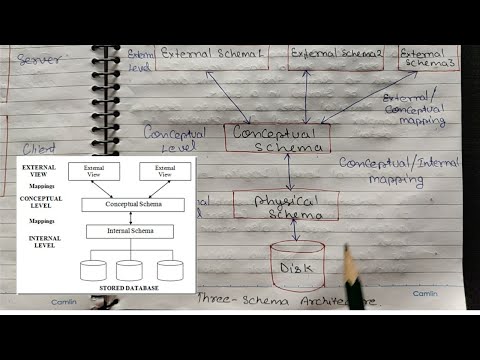 Server
Client
External
Level
External Schema1
External Schema2
External
Schema3
External/
Conceptual
mapping
Conceptual
Level
Conceptual
Schema
Conceptual/Internal
mapping
Physical
Schema
Disk
Three-Schema Architecture
Camlin
Camlin
EXTERNAL
VIEW
External
View
External
View
Mappings
CONCEPTUAL
LEVEL
Conceptual Schema
Mappings
INTERNAL
LEVEL
Internal Schema
STORED DATABASE